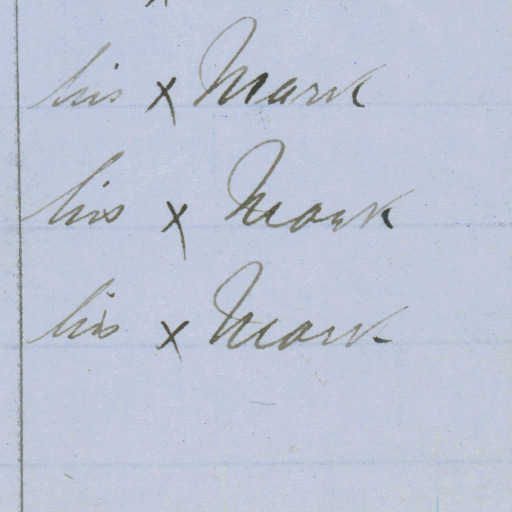 his x Mark
his x Mark
his x Mark